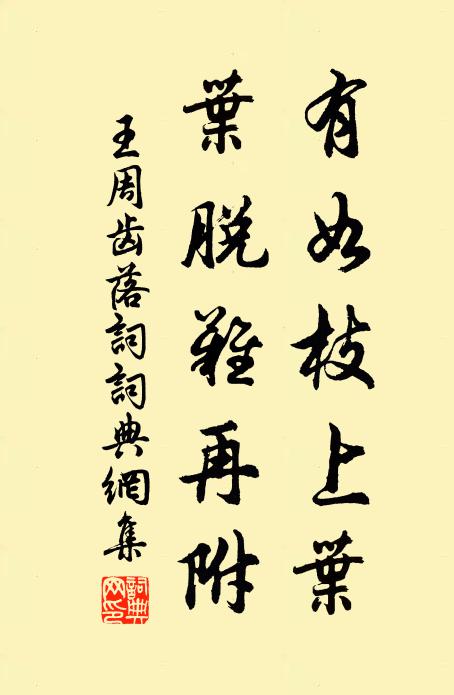 有如枝上葉
葉脱難再附
王周齿落詞詞典網集
詞典
网印